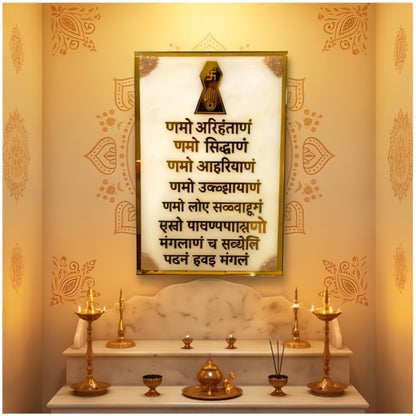 णमो अरिहंताणं
णमो सिद्धाणं
णमो आहरियाणं
णमो उव्झायाणं
णमो लोए सळ्वाहूगं
एसो पाचण्पणास्नणो
मंगलाणं च सव्येलि
पढनं हवइ मंगलं